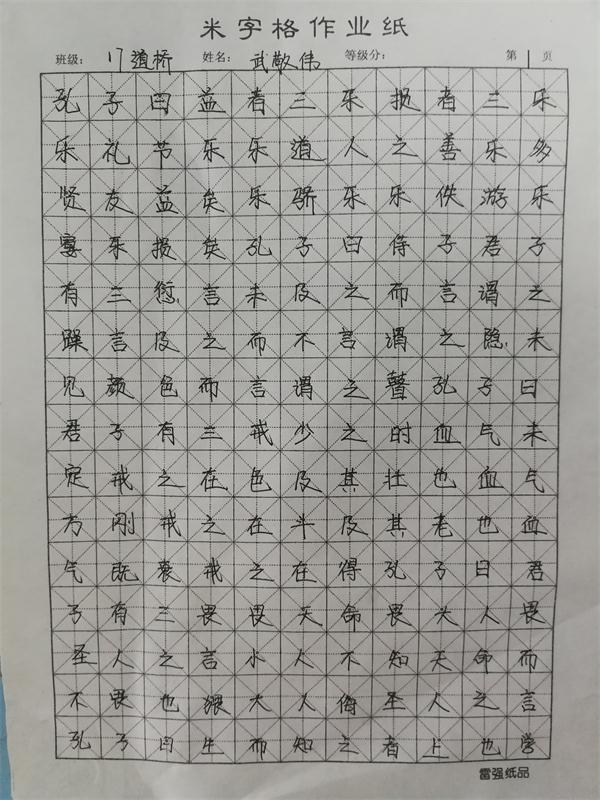 米字格作业纸
班级：17道桥 姓名：武敬伟 等级分： 第1页
孔子曰益者三乐损者三乐
乐礼节乐乐道人之善乐多
贤友益矣乐骄乐乐佚游乐
宴乐损矣孔子曰侍子君子
有三愆言未及之而言谓之
躁言及之而不言谓之隐未
见颜色而言谓之瞽孔子曰
君子有三戒少之时血气未
定戒之在色及其壮也血气
方刚戒之在斗及其老也血
气既衰戒之在得孔子曰君
子有三畏畏天命畏大人畏
圣人之言小人不知天命而
不畏也狎大人侮圣人之言
孔子曰生而知之者上也学
雷强纸品